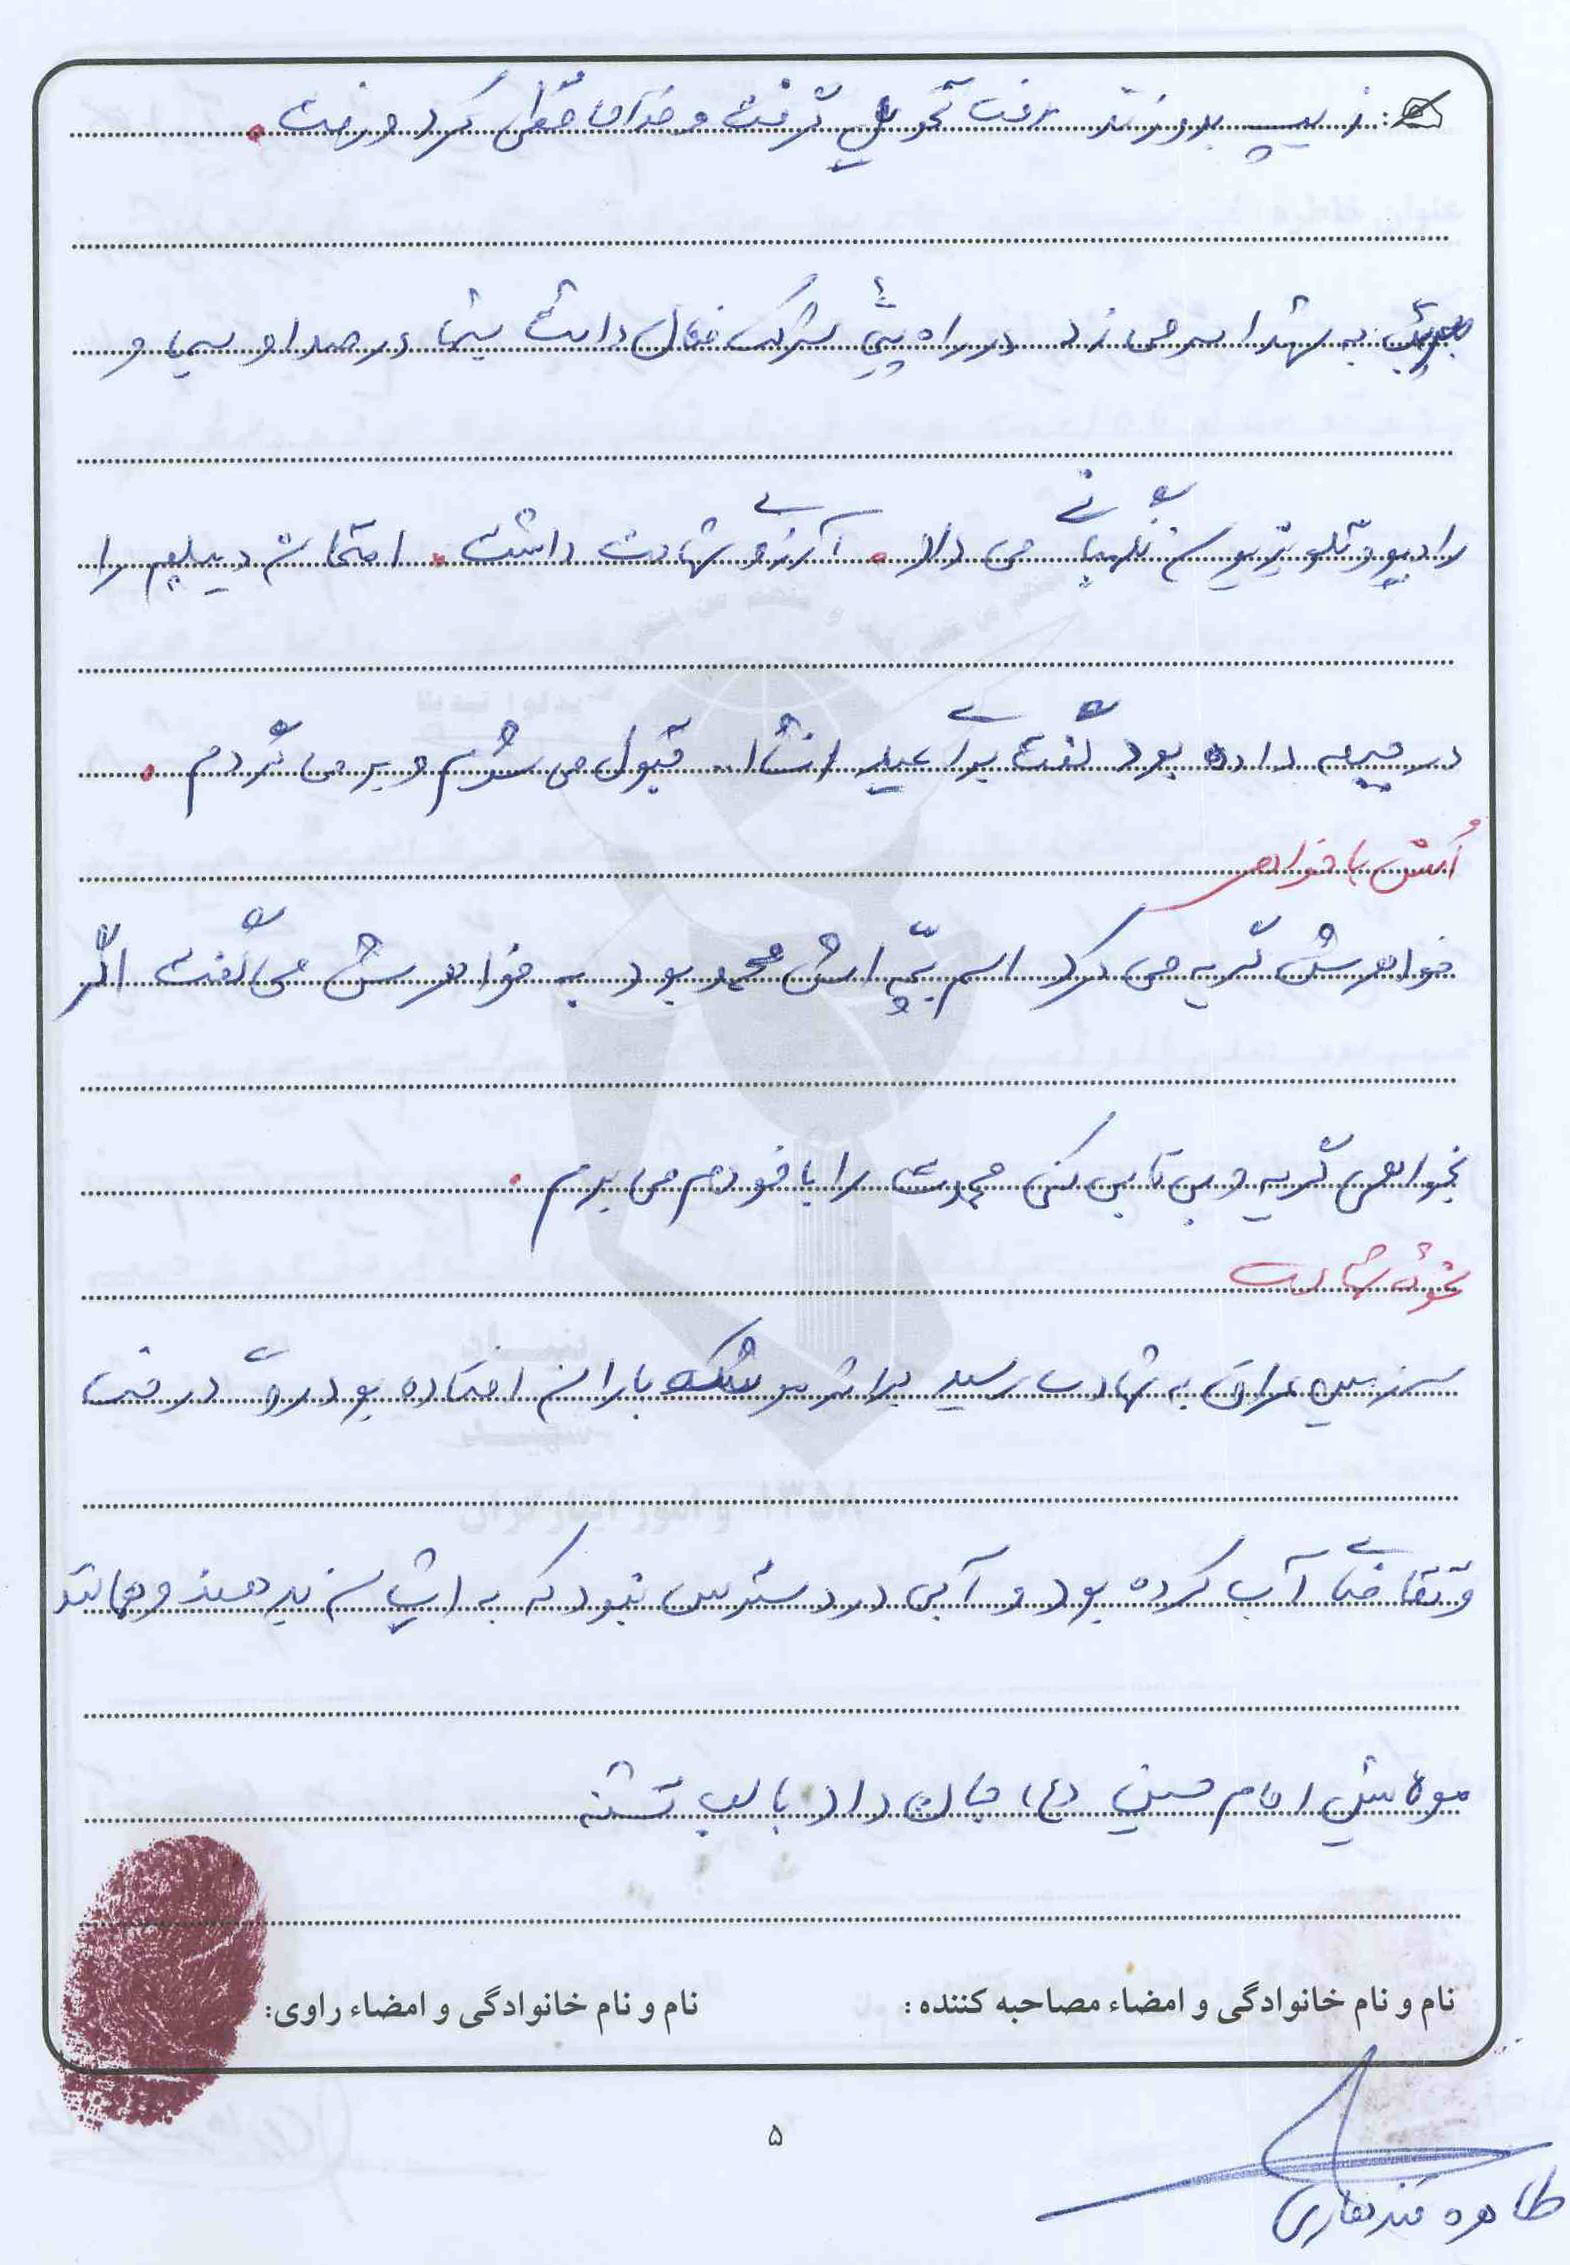 زیپ بدوزند رفت تحویل گرفت و خداحافظی کرد و رفت.
به شهدا سر می زد در راه پیمایی شرکت فعال داشت شبها در صدا و سیما و
رادیو و تلویزیون نگهبانی می داد. آرزوی شهادت داشت. امتحان دیپلم را
در جبهه داده بود گفت برای عید انشاا.. قبول می شوم و بر می گردم.
اُنس با خواهر
خواهرش گریه می کرد اسم بچّه اش محمد بود به خواهرش می گفت اگر
بخواهی گریه و بی تابی کنی محمدت را با خودم می برم.
نحوه شهادت
سرزمین عراق به شهادت رسید بر اثر موشک باران افتاده بود روی درخت
و تقاضای آب کرده بود و آبی در دسترس نبود که به ایشان بدهند و همانند
مولایش امام حسین (ع) جان داد با لب تشنه
نام و نام خانوادگی و امضاء مصاحبه کننده: نام و نام خانوادگی و امضاء راوی:
۵
طاهره قندهاری